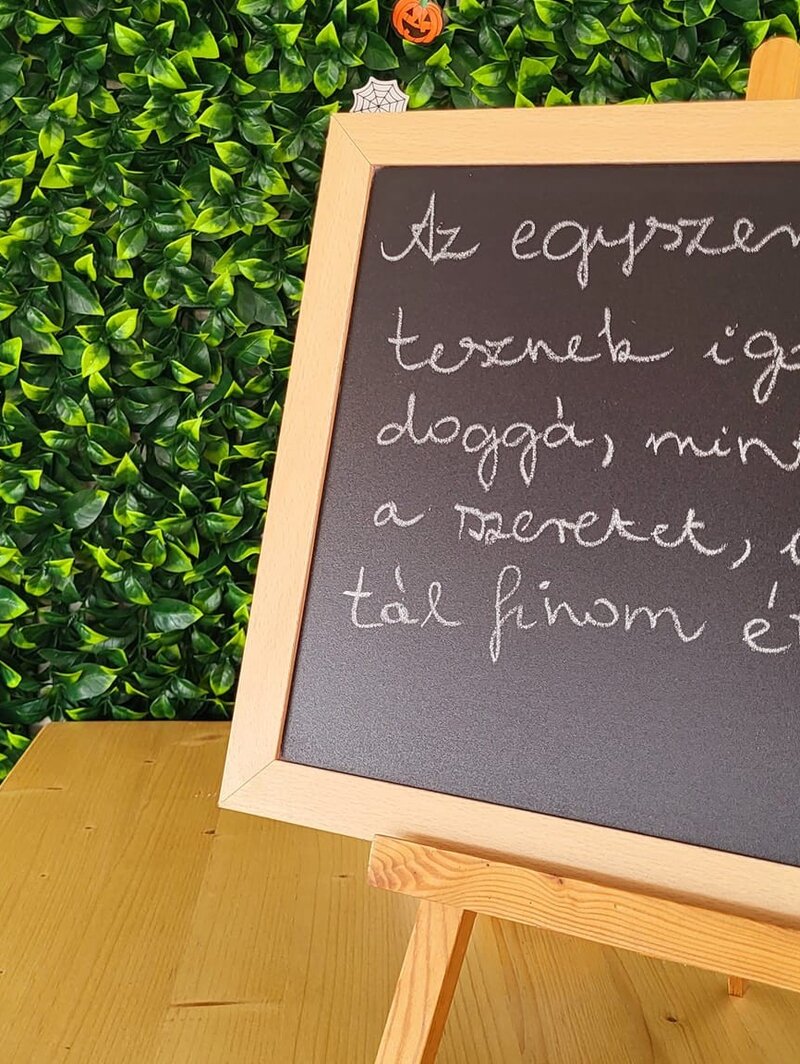 Az egyszer
tesznek iga
doggá, mint
a szeretet,
tál finom ét